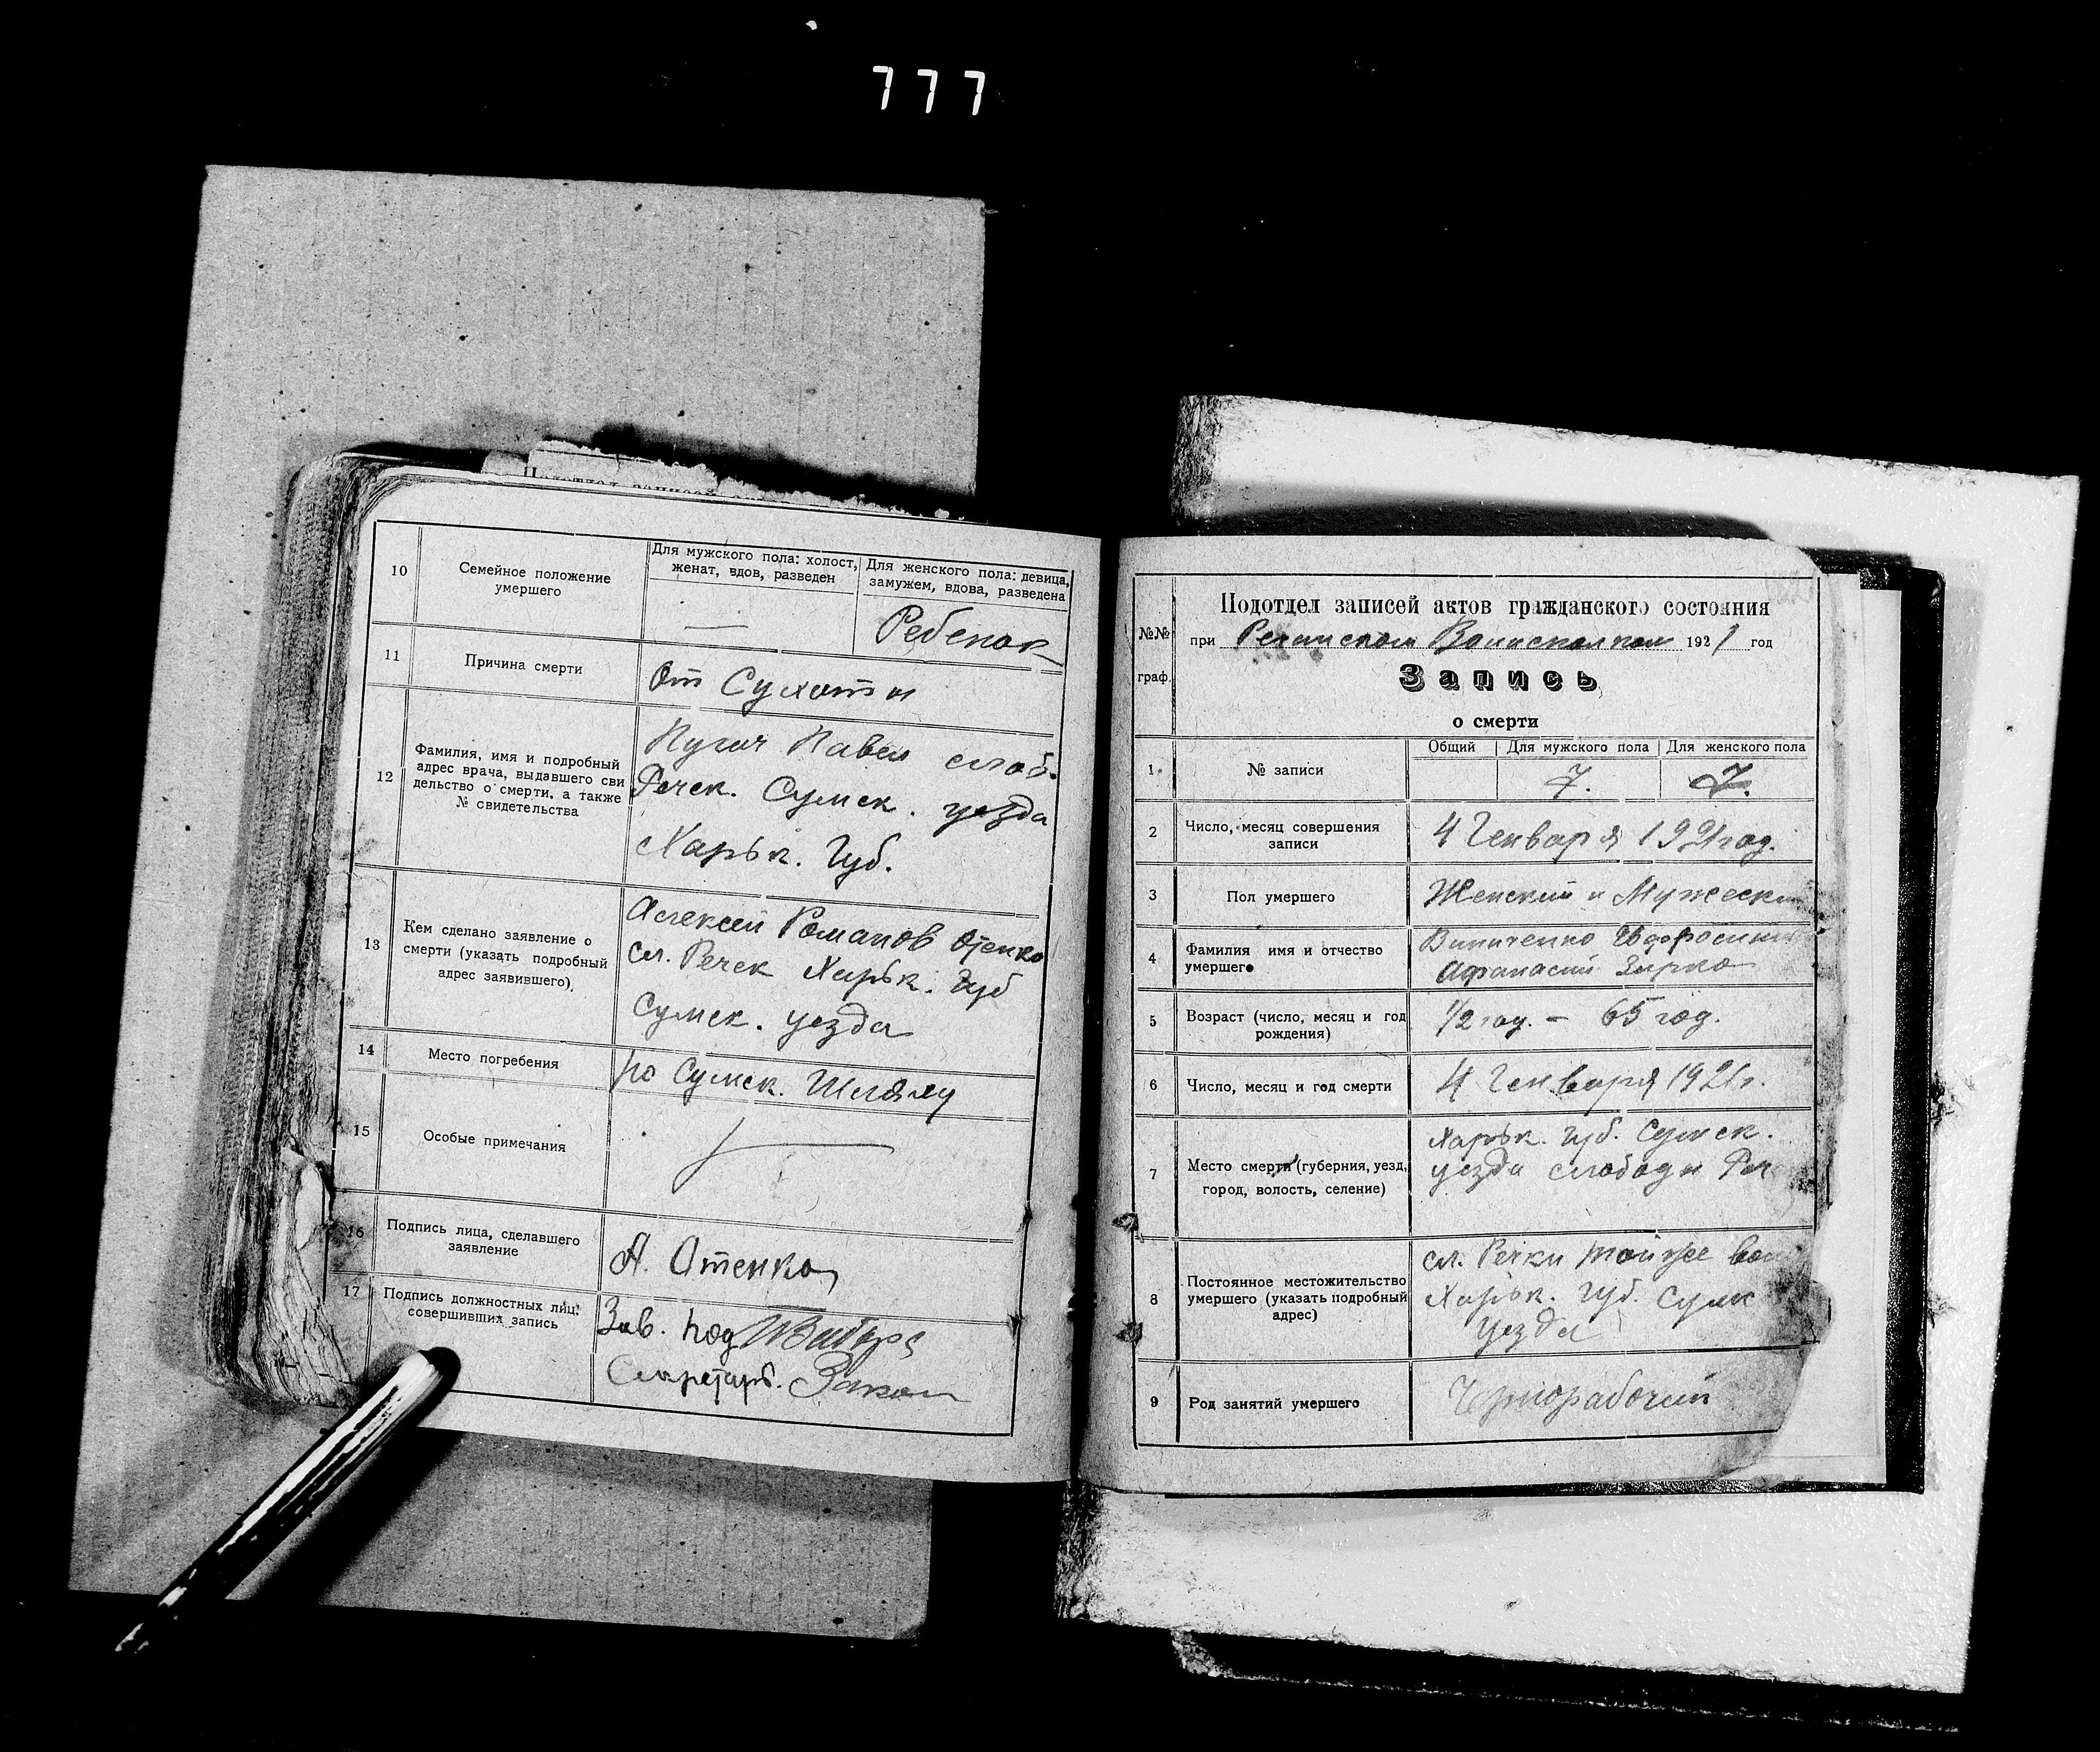 777
10
Семейное положение
умершего
Для мужского пола: холост,
женат, вдов, разведен
Для женского пола: девица,
замужем, вдова, разведена
Ребенок
11
Причина смерти
От Сухоты
12
Фамилия, имя и подробный
адрес врача, выдавшего сви
дельство о смерти, а также
№ свидетельства
Пугач Павел слоб.
Речек. Сумск. уезда
Харьк. Губ.
13
Кем сделано заявление о
смерти (указать подробный
адрес заявившего).
Алексей Романов Отенко
сл. Речек Харьк. Губ
Сумск. уезда
14
Место погребения
по Сумск. Шляху
15
Особые примечания
16
Подпись лица, сделавшего
заявление
А. Отенко
17
Подпись должностных лиц,
совершивших запись
Зав. Под
Секретарь.
№№
граф.
Подотдел записей актов гражданского состояния
при Речанском Волисполком 1921 год
Запись
о смерти
1
№ записи
Общий
Для мужского пола
Для женского пола
7.
7.
2
Число, месяц совершения
записи
4 Генваря 1921 год.
3
Пол умершего
Женский и Мужески
4
Фамилия имя и отчество
умершего
Винниченко
Афанасий Зирка
5
Возраст (число, месяц и год
рождения)
1/2 год. – 65 год.
6
Число, месяц и год смерти
4 Генваря 1921 г.
7
Место смерти (губерния, уезд,
город, волость, селение)
Харьк. Губ. Сумск.
уезда слободы Реч
8
Постоянное местожительство
умершего (указать подробный
адрес)
сл. Речки той же вол
Харьк. Губ. Сумк
уезда
9
Род занятий умершего
Чернорабочий